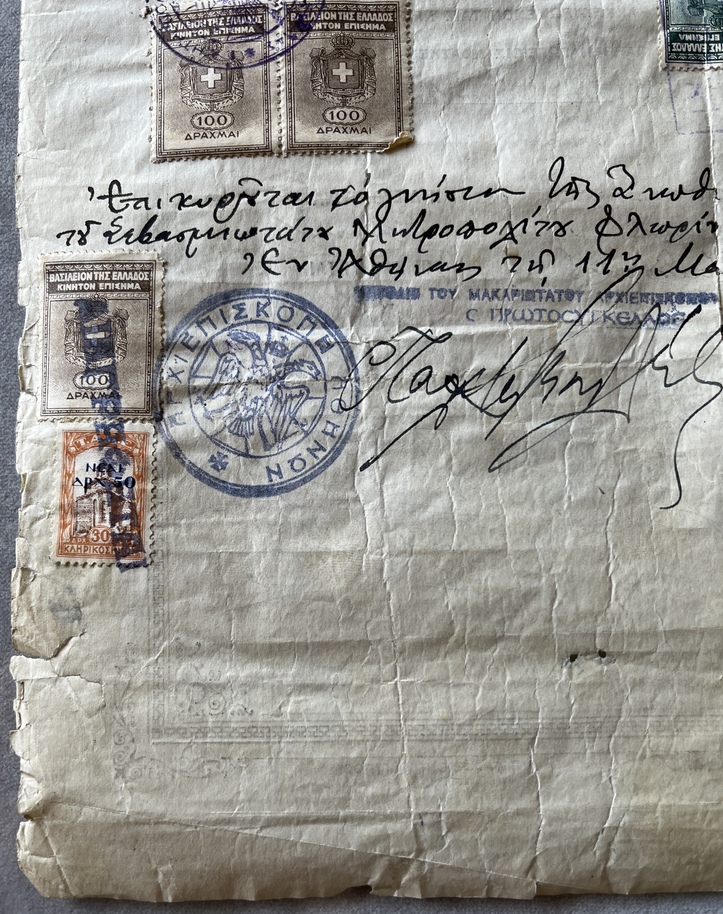 ΒΑΣΙΛΕΙΟΝ ΤΗΣ ΕΛΛΑΔΟΣ
ΚΙΝΗΤΟΝ ΕΠΙΣΗΜΑ
100
ΔΡΑΧΜΑΙ
ΒΑΣΙΛΕΙΟΝ ΤΗΣ ΕΛΛΑΔΟΣ
ΚΙΝΗΤΟΝ ΕΠΙΣΗΜΑ
100
ΔΡΑΧΜΑΙ
ΤΗΣ ΕΛΛΑΔΟΣ
ΕΠΙΣΗΜΑ
Ἐπικυροῦται τὸ γνήσιον τῆς
τοῦ Σεβασμιωτάτου Μητροπολίτου Φλωρίν
Ἐν Ἀθήναις τῇ 11ῃ Μα
ΤΟΥ ΜΑΚΑΡΙΩΤΑΤΟΥ ΑΡΧΙΕΠΙΣΚΟΠΟΥ
Ο ΠΡΩΤΟΣΥΓΚΕΛΛΟΣ
ΒΑΣΙΛΕΙΟΝ ΤΗΣ ΕΛΛΑΔΟΣ
ΚΙΝΗΤΟΝ ΕΠΙΣΗΜΑ
100
ΔΡΑΧΜΑΙ
ΑΡΧΙΕΠΙΣΚΟΠΗ ΑΘΗΝΩΝ
ΝΕΑΙ
ΔΡΧ. 50
30